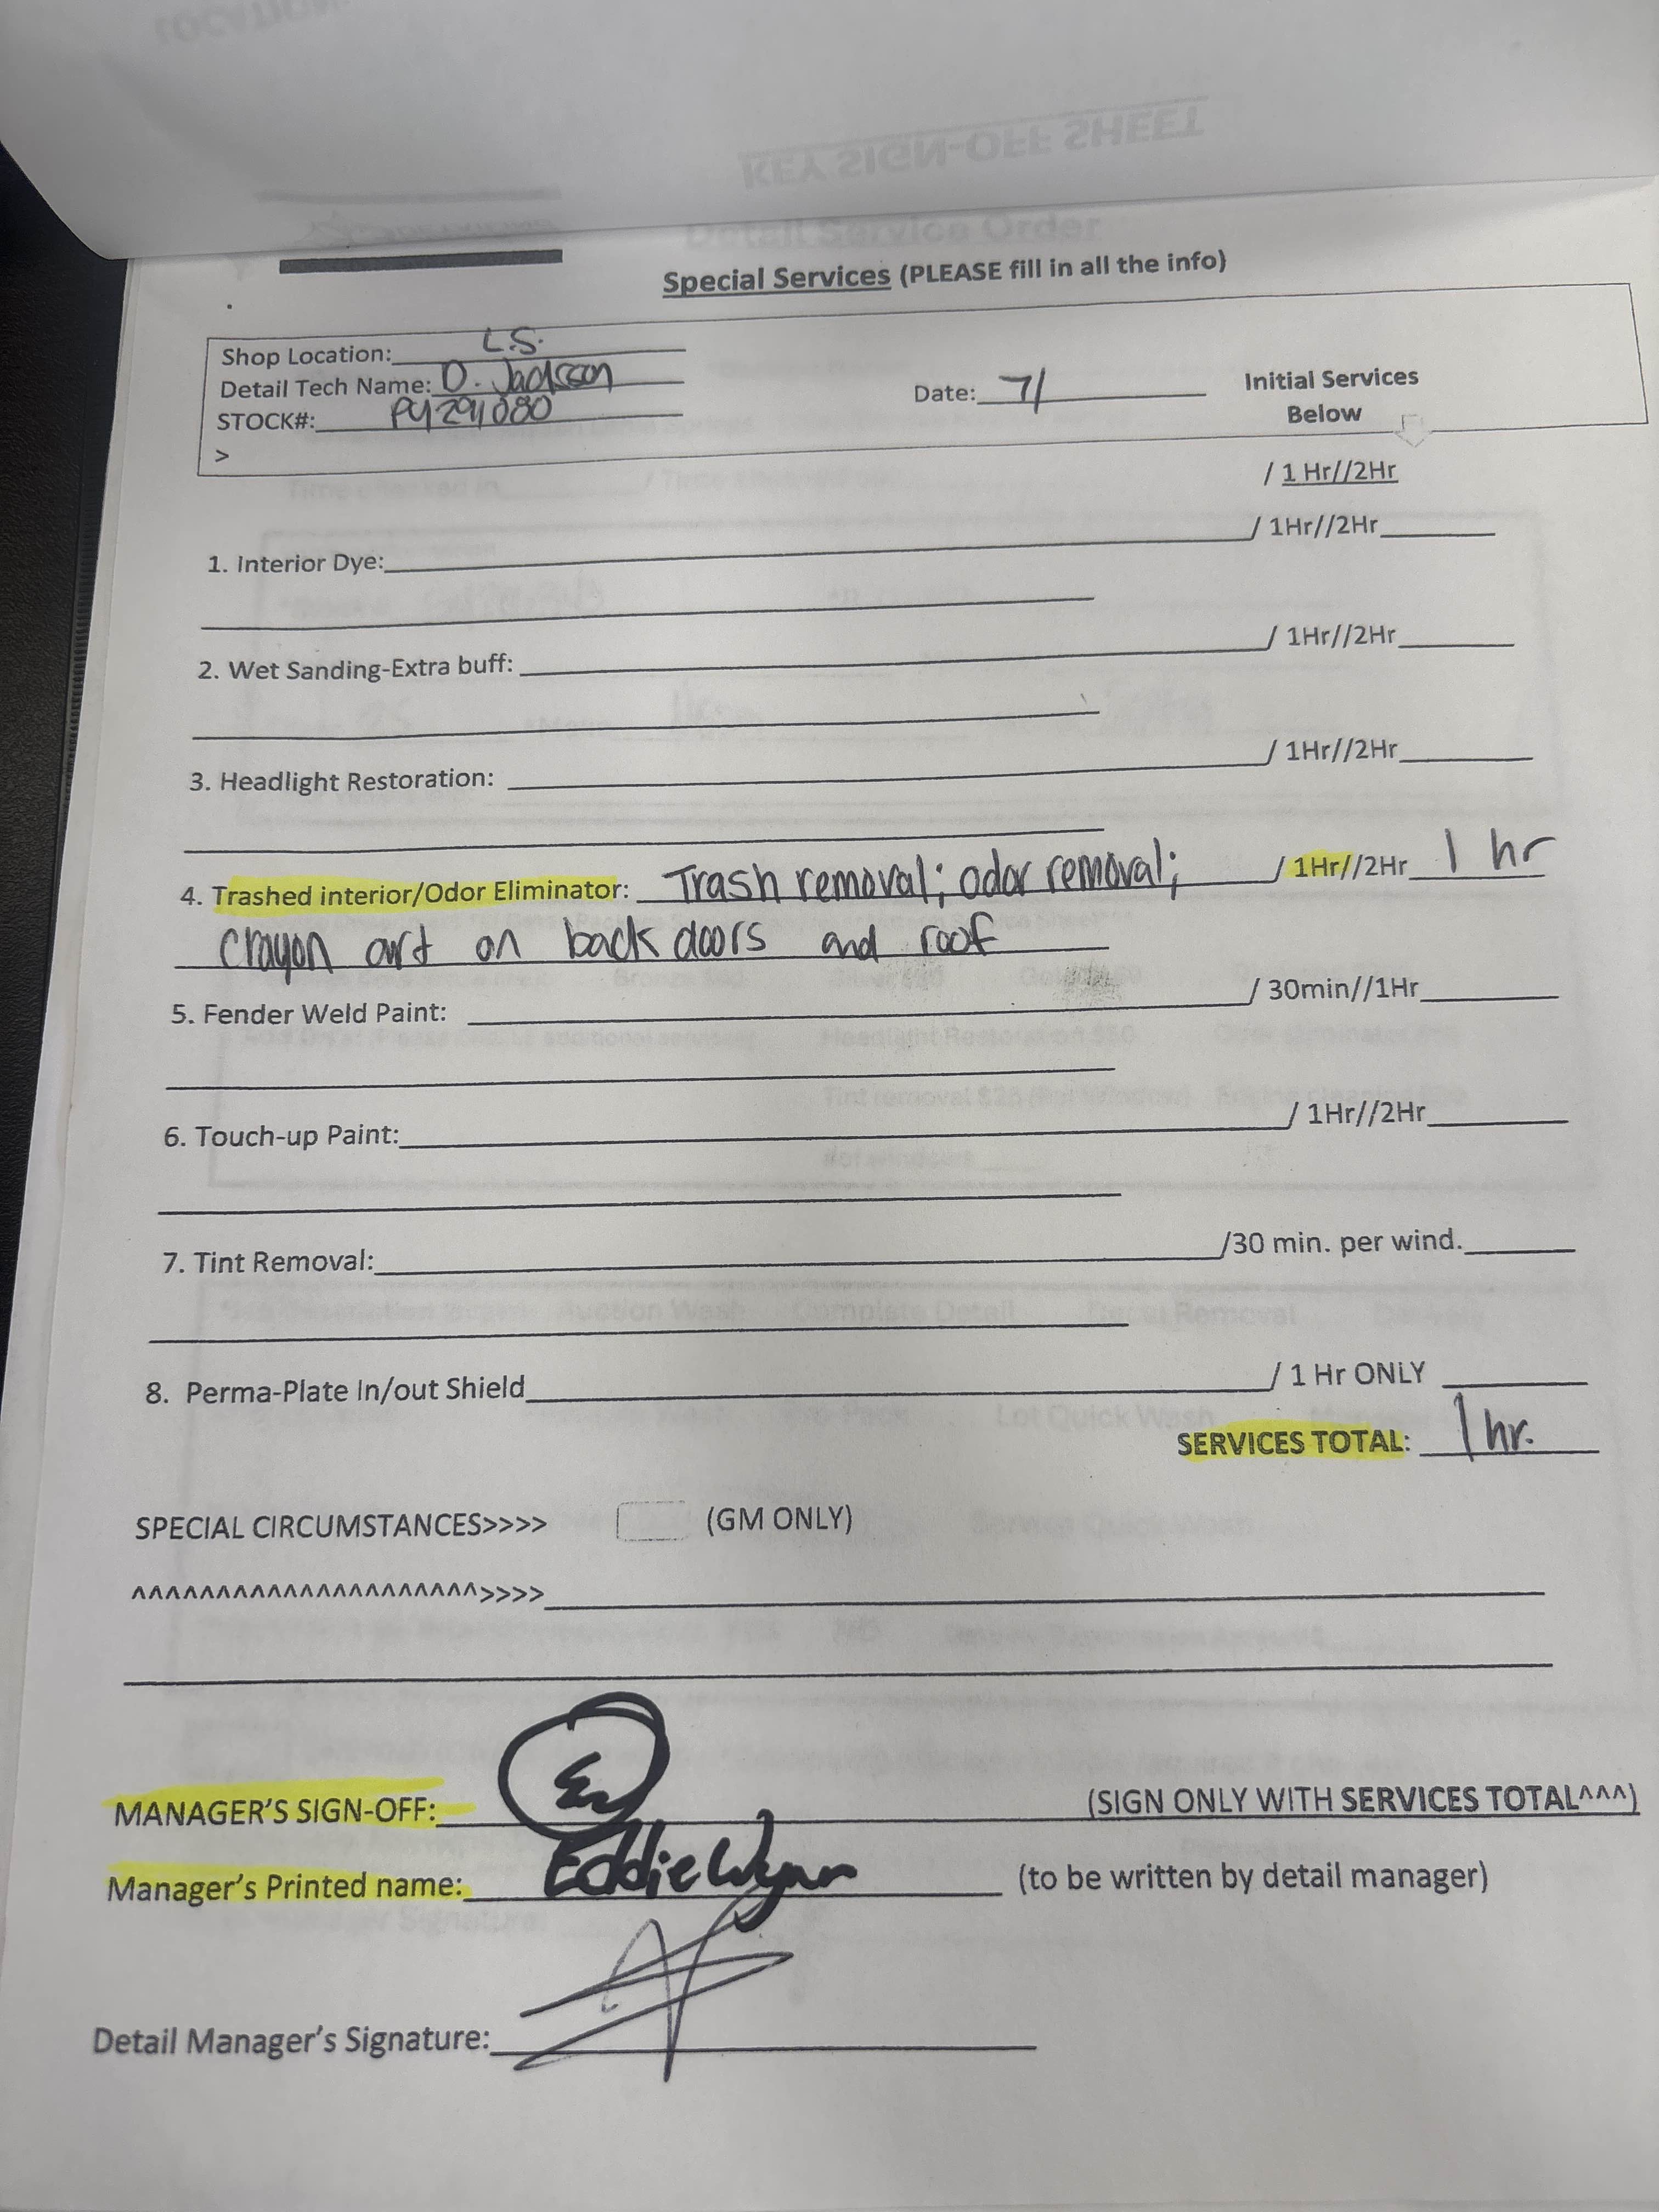 KEY SIGN-OFF SHEET
Detail Service Order
Special Services (PLEASE fill in all the info)
Shop Location: L.S.
Detail Tech Name: D. Jackson
Date: 7/
Initial Services
Below
STOCK#: PY294080
>
/ 1 Hr//2Hr
1. Interior Dye: / 1Hr//2Hr
2. Wet Sanding-Extra buff: / 1Hr//2Hr
3. Headlight Restoration: / 1Hr//2Hr
4. Trashed interior/Odor Eliminator: Trash removal; odor removal; / 1Hr//2Hr 1 hr
crayon art on back doors and roof
5. Fender Weld Paint: / 30min//1Hr
6. Touch-up Paint: / 1Hr//2Hr
7. Tint Removal: /30 min. per wind.
8. Perma-Plate In/out Shield / 1 Hr ONLY
SERVICES TOTAL: 1 hr.
SPECIAL CIRCUMSTANCES>>>> (GM ONLY)
^^^^^^^^^^^^^^^^^^^^^>>>>
MANAGER'S SIGN-OFF: EW (SIGN ONLY WITH SERVICES TOTAL^^^)
Manager's Printed name: Eddie Wynn (to be written by detail manager)
Detail Manager's Signature: